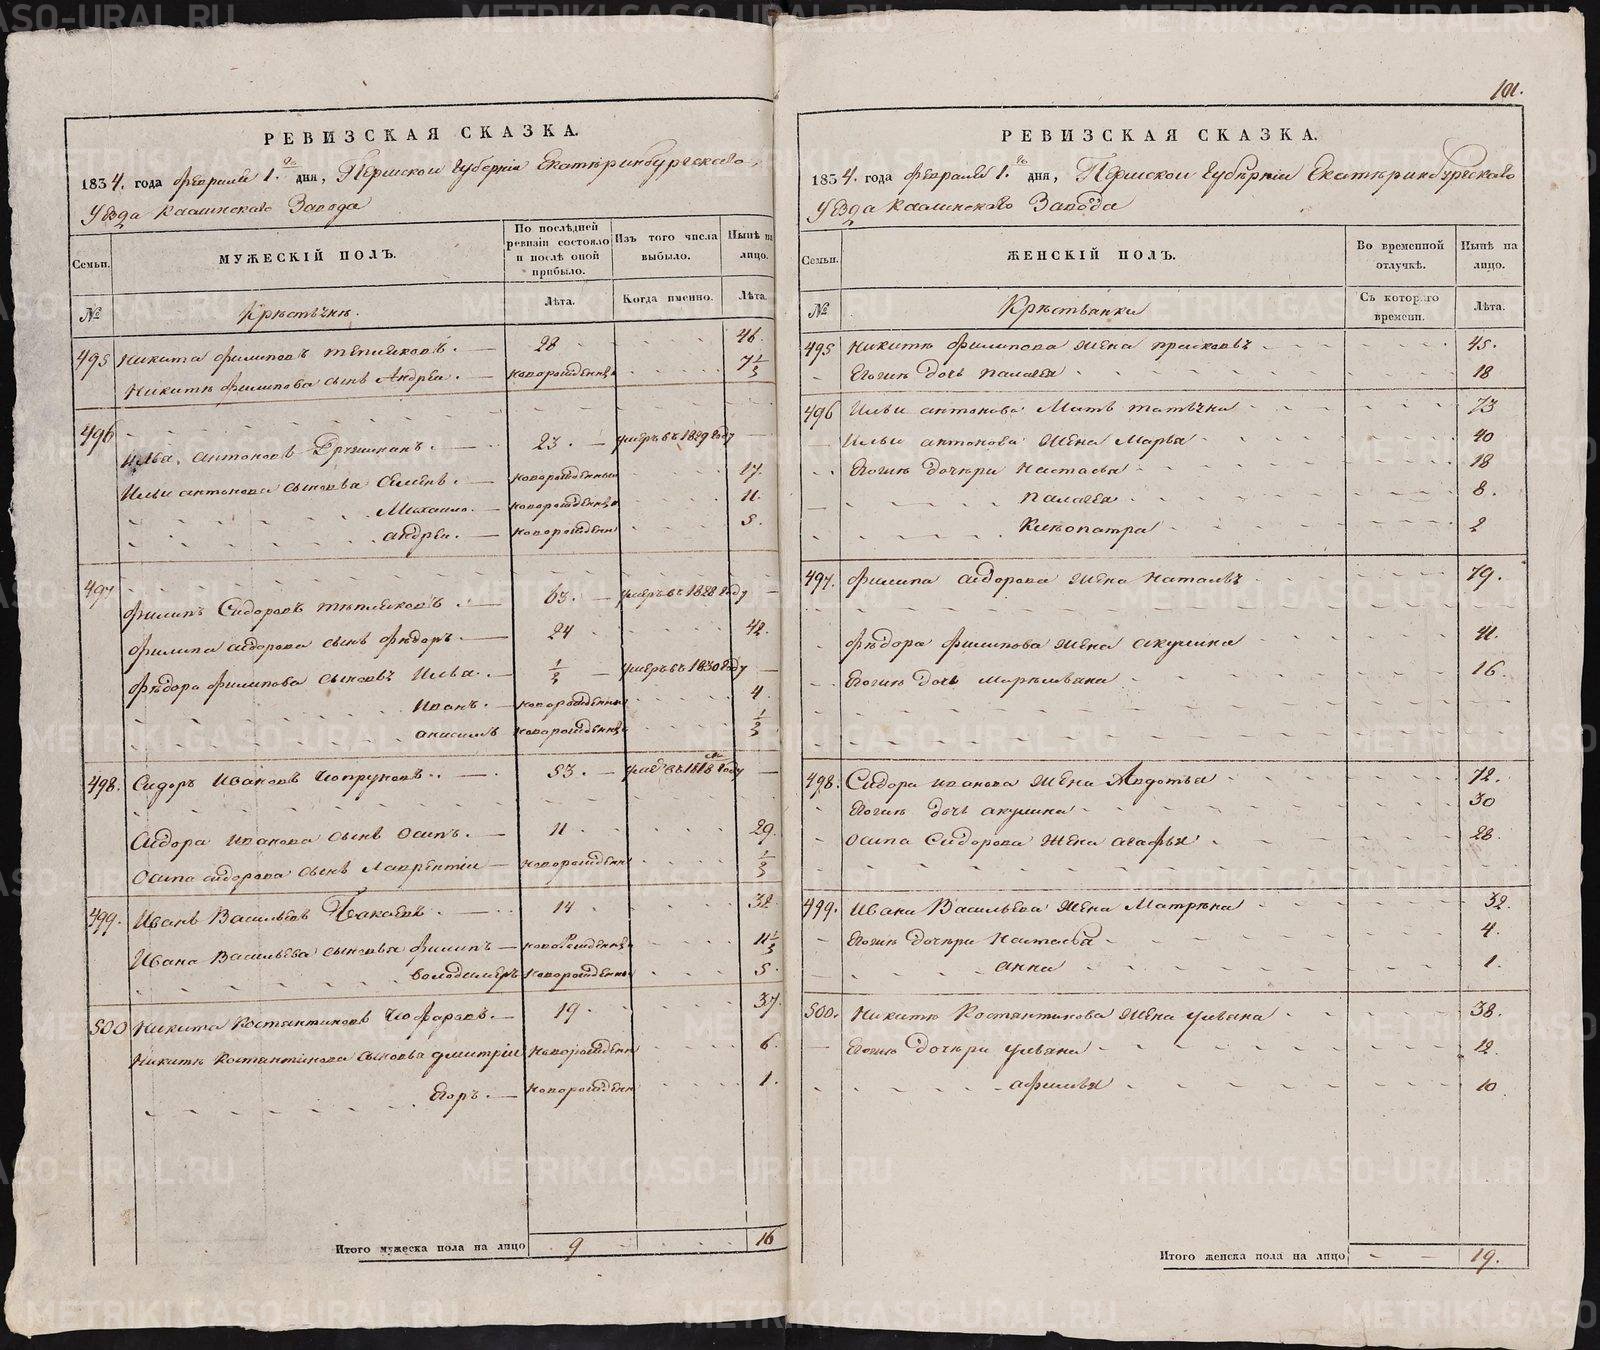 РЕВИЗСКАЯ СКАЗКА.
1834. года февраля 1.го дня, Пермской Губернии Екатеринбургскаго
Уезда Каслинскаго Завода
Семьи.
МУЖЕСКІЙ ПОЛЪ.
По послѣдней ревизіи состояло и послѣ оной прибыло.
Изъ того числа выбыло.
Нынѣ на лицо.
№
Крестьяне.
Лѣта.
Когда именно.
Лѣта.
495 Никита Филиповъ 28 46.
Никиты Филипова сынъ Андрей новорожденный 7 1/2
496 Илья Антоновъ 23. умеръ въ 1829 году
Ильи Антонова сыновья Семенъ новорожденный 17.
Михайло новорожденный 11.
Андрей новорожденный 5.
497 Филипъ Сидоровъ 63. умеръ въ 1828 году
Филипа Сидорова сынъ Федоръ 24 42.
Федора Филипова сыновья Илья 1/2 умеръ въ 1830 году
Иванъ новорожденный 4
Анисимъ новорожденный 1/2
498. Сидоръ Ивановъ 53. въ 1818 году
Сидора Иванова сынъ Осипъ 11 29.
Осипа Сидорова сынъ Лаврентій новорожденный 1/2
499. Иванъ Васильевъ 14 32
Ивана Васильева сыновья Филипъ новорожденный 11 1/2
Володимеръ новорожденный 5.
500 Никита Костентиновъ 19. 37.
Никиты Костентинова сыновья Дмитрій новорожденный 6.
Егоръ новорожденный 1.
Итого мужеска пола на лицо 9 16
101.
РЕВИЗСКАЯ СКАЗКА.
1834. года февраля 1.го дня, Пермской Губерніи Екатеринбургскаго
Уезда Каслинскаго Завода
Семьи.
ЖЕНСКІЙ ПОЛЪ.
Во временной отлучкѣ.
Нынѣ на лицо.
№
Крестьянки
Съ котораго времени.
Лѣта.
495 Никиты Филипова жена Прасковья 45.
Егоже дочь Палагея 18
496 Ильи Антонова мать Татьяна 73
Ильи Антонова жена Марья 40
Егоже дочери Настасья 18
Палагея 8.
Клеопатра 2
497. Филипа Сидорова жена Наталья 79.
Федора Филипова жена Акулина 41.
Егоже дочь 16.
498. Сидора Иванова жена Авдотья 72.
Егоже дочь Акулина 30
Осипа Сидорова жена Агафья 28
499. Ивана Васильева жена Матрена 32.
Егоже дочери Настасья 4.
Анна 1.
500. Никиты Костентинова жена Ульяна 38.
Егоже дочери Ульяна 12.
Афимья 10
Итого женска пола на лицо 19.
METRIKI.GASO-URAL.RU